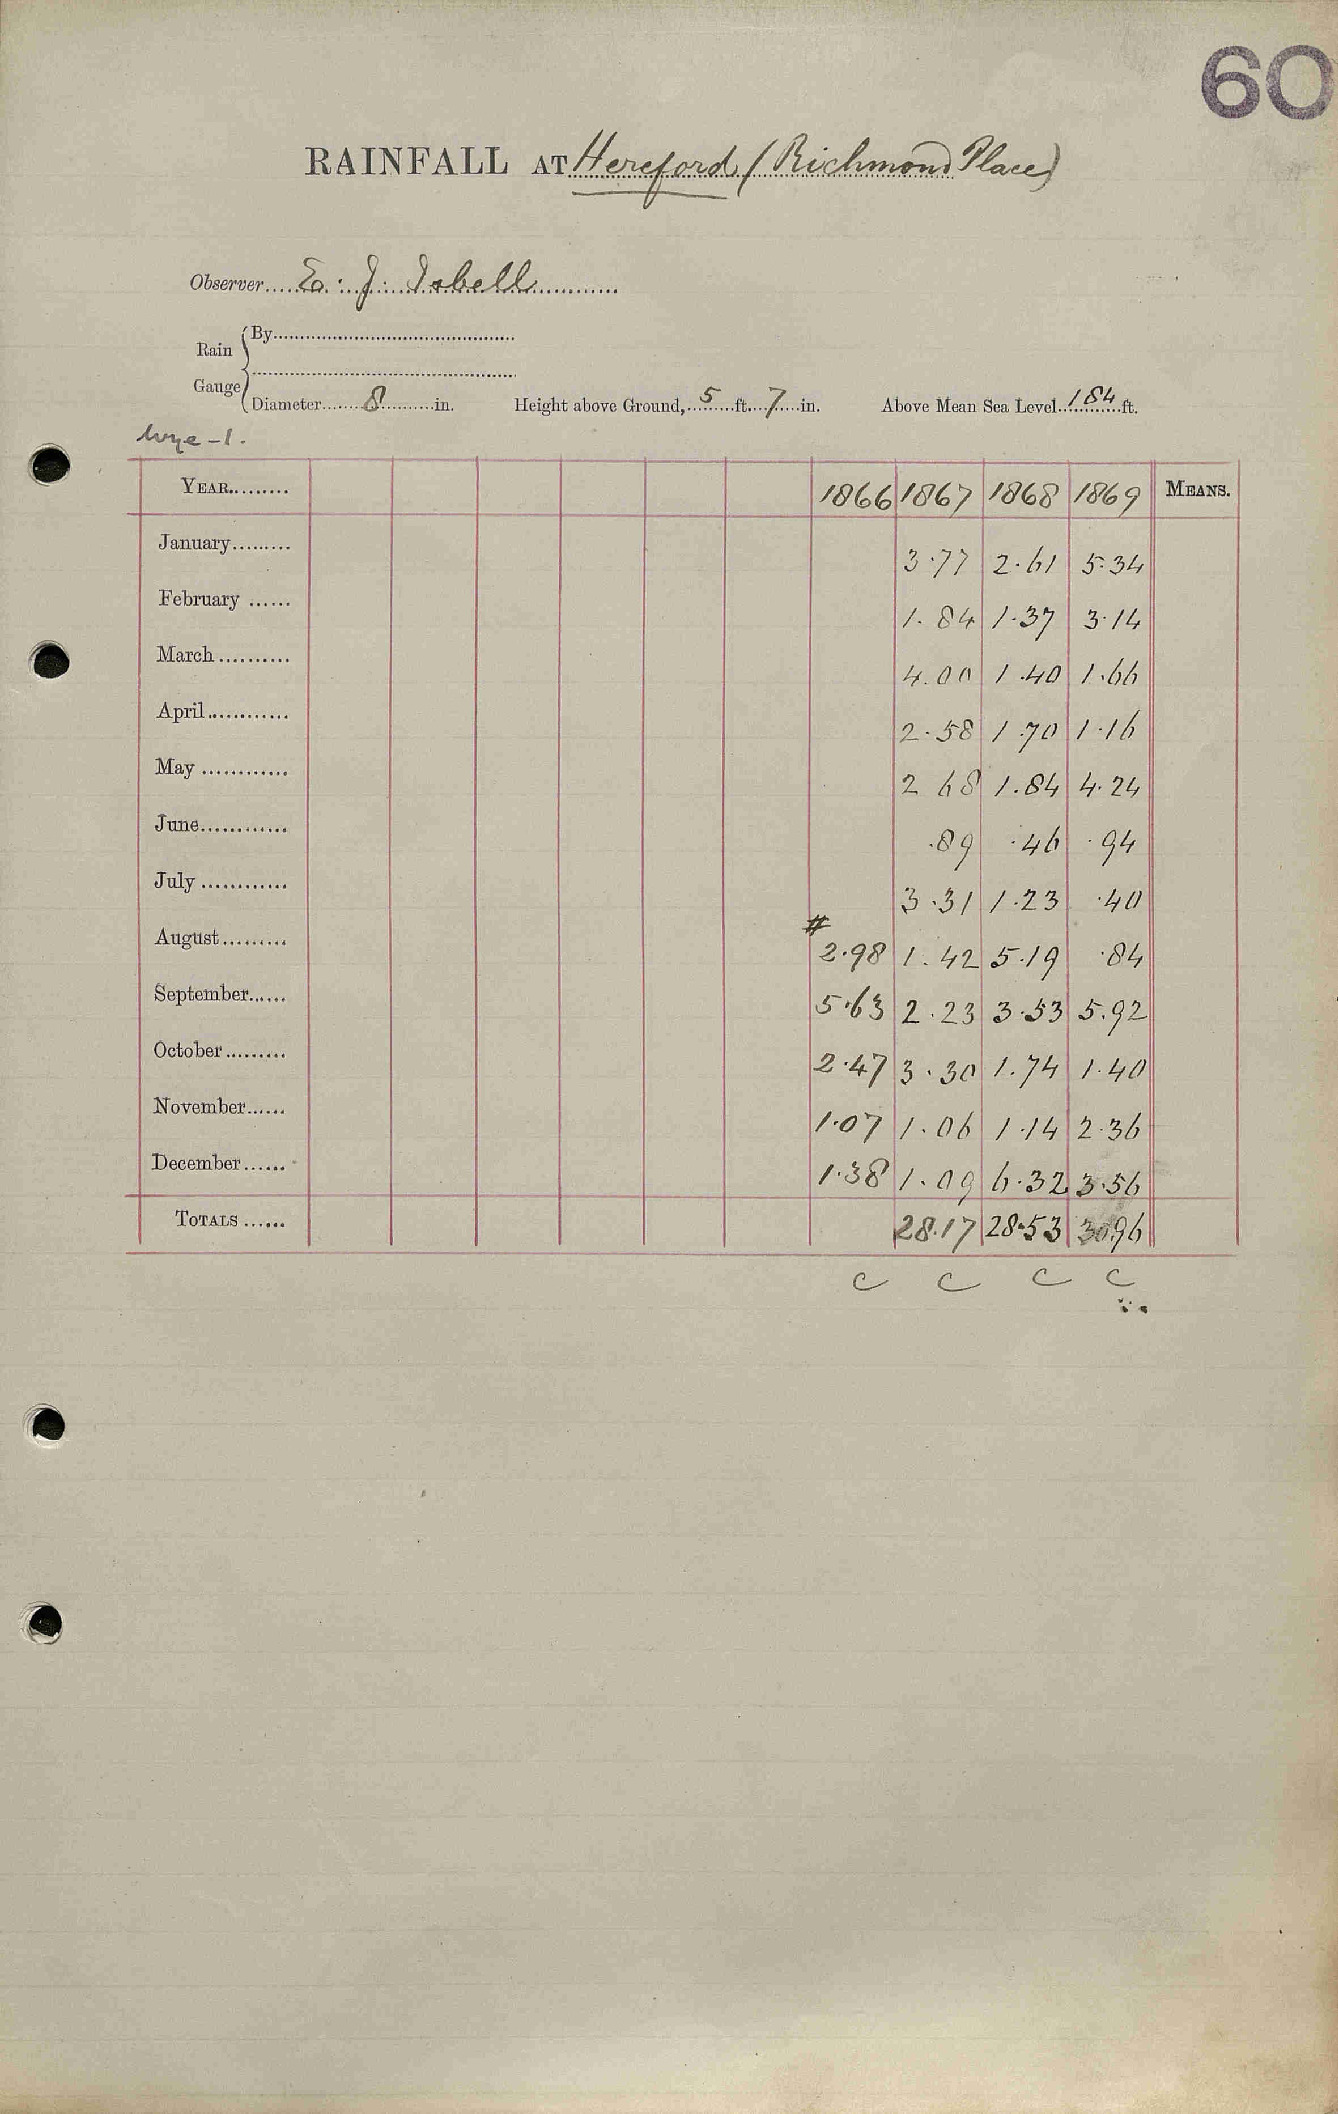 60
RAINFALL AT Hereford (Richmond Place)
Observer..... E. J. Isbell ............
Rain Gauge { By..............................................
..................................................
Diameter....... 8 ..........in. Height above Ground, 5 ft. 7 in. Above Mean Sea Level 184 ft.
Wye - 1.
YEAR......... 1866 1867 1868 1869 MEANS.
January......... 3.77 2.61 5.34
February ...... 1.84 1.37 3.14
March.......... 4.00 1.40 1.66
April............ 2.58 1.70 1.16
May ............ 2 68 1.84 4.24
June............ .89 .46 .94
July ............ 3.31 1.23 .40
#
August......... 2.98 1.42 5.19 .84
September...... 5.63 2.23 3.53 5.92
October......... 2.47 3.30 1.74 1.40
November...... 1.07 1.06 1.14 2.36
December...... 1.38 1.09 6.32 3.56
TOTALS ...... 28.17 28.53 30.96
C C C C